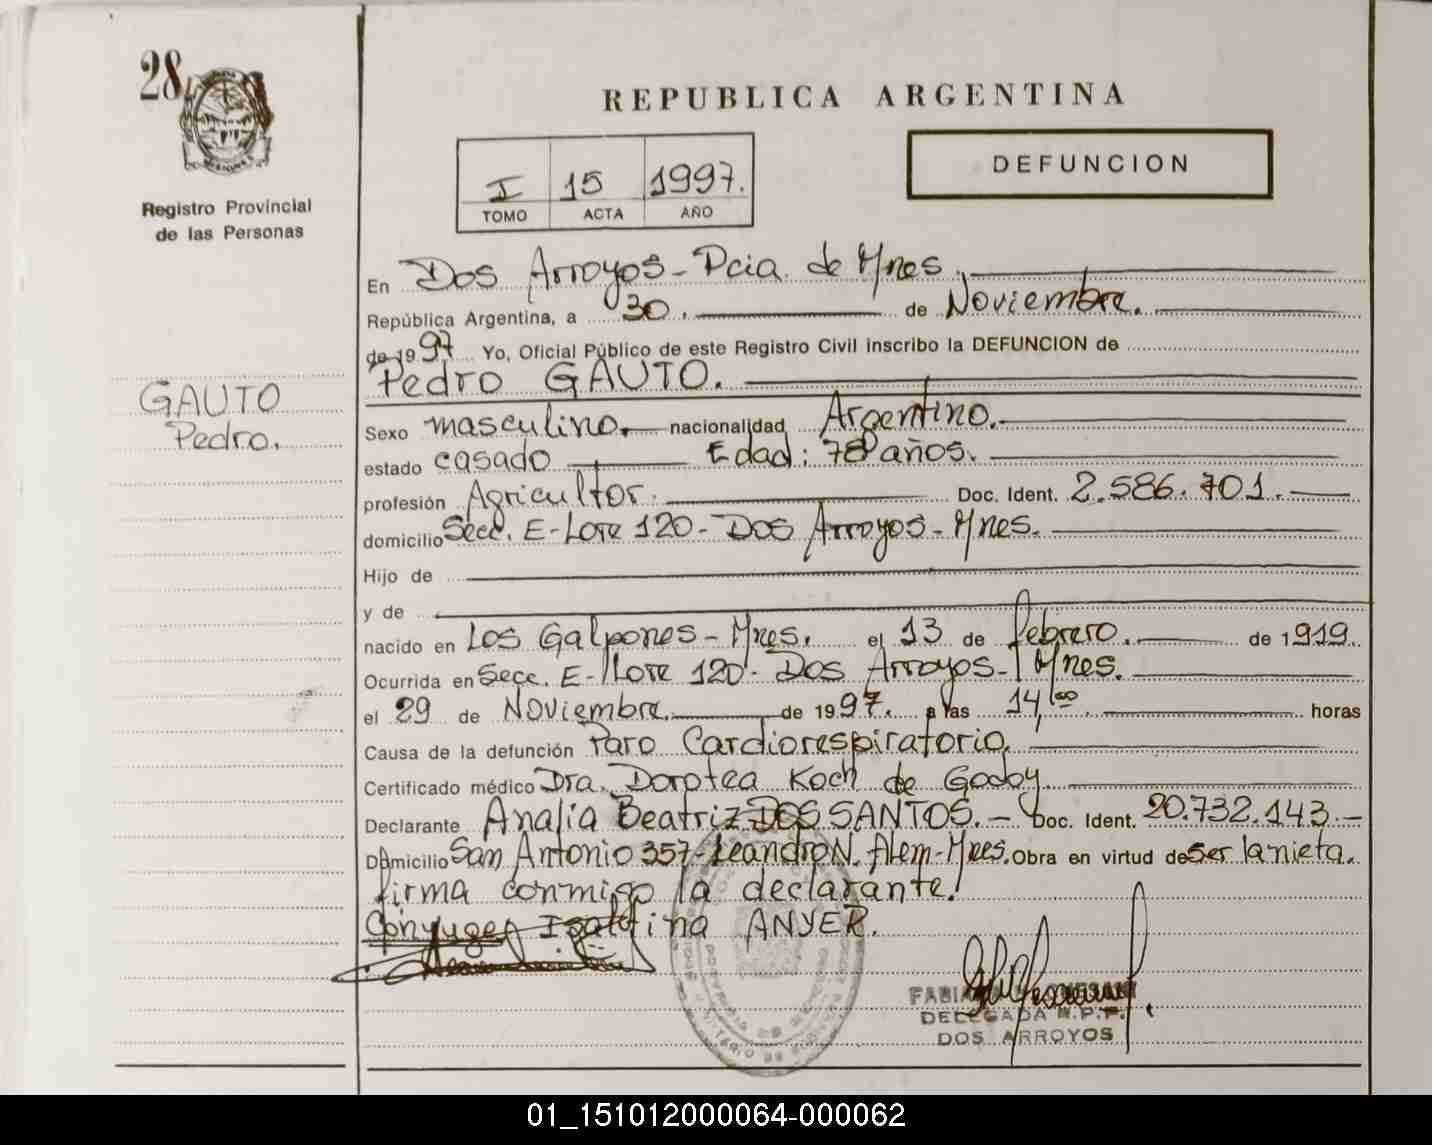 28
Registro Provincial
de las Personas
REPUBLICA ARGENTINA
I 15 1997.
TOMO ACTA AÑO
DEFUNCION
GAUTO
Pedro.
En Dos Arroyos - Pcia. de Mnes.
República Argentina, a 30. de Noviembre.
de 1997 Yo, Oficial Público de este Registro Civil inscribo la DEFUNCION de
Pedro GAUTO.
Sexo masculino. nacionalidad Argentino.
estado casado Edad: 78 años.
profesión Agricultor. Doc. Ident. 2.586.701.
domicilio Secc. E - Lote 120 - Dos Arroyos - Mnes.
Hijo de
y de
nacido en Los Galpones - Mnes. el 13 de febrero. de 1919.
Ocurrida en Secc. E - Lote 120 - Dos Arroyos - Mnes.
el 29 de Noviembre. de 1997. a las 14,00 horas
Causa de la defunción Paro Cardiorespiratorio.
Certificado médico Dra. Dorotea Koch de Godoy
Declarante Analia Beatriz DOS SANTOS. - Doc. Ident. 20.732.143. -
Domicilio San Antonio 357 - Leandro N. Alem - Mnes. Obra en virtud de Ser la nieta.
firma conmigo la declarante.
Cónyuge: ANYER.
DELEGADA R.P.P.
DOS ARROYOS
01_151012000064-000062